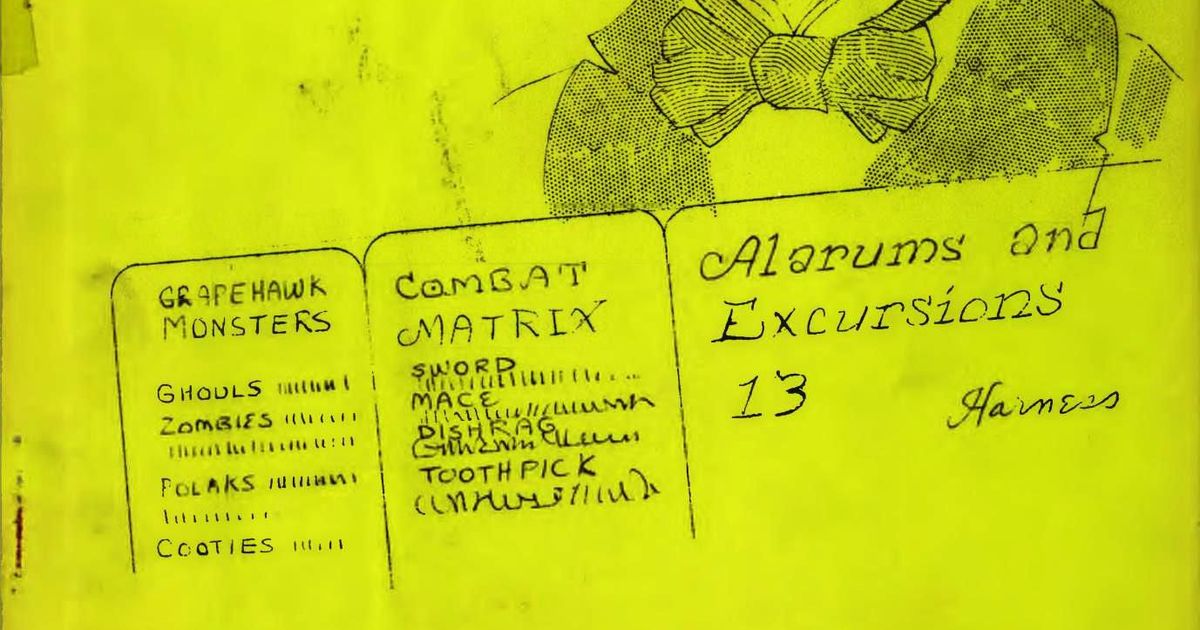 GRAPEHAWK
MONSTERS
GHOULS
ZOMBIES
POLAKS
COOTIES
COMBAT
MATRIX
SWORD
MACE
DISHRAG
TOOTHPICK
Alarums and
Excursions
13
Harness